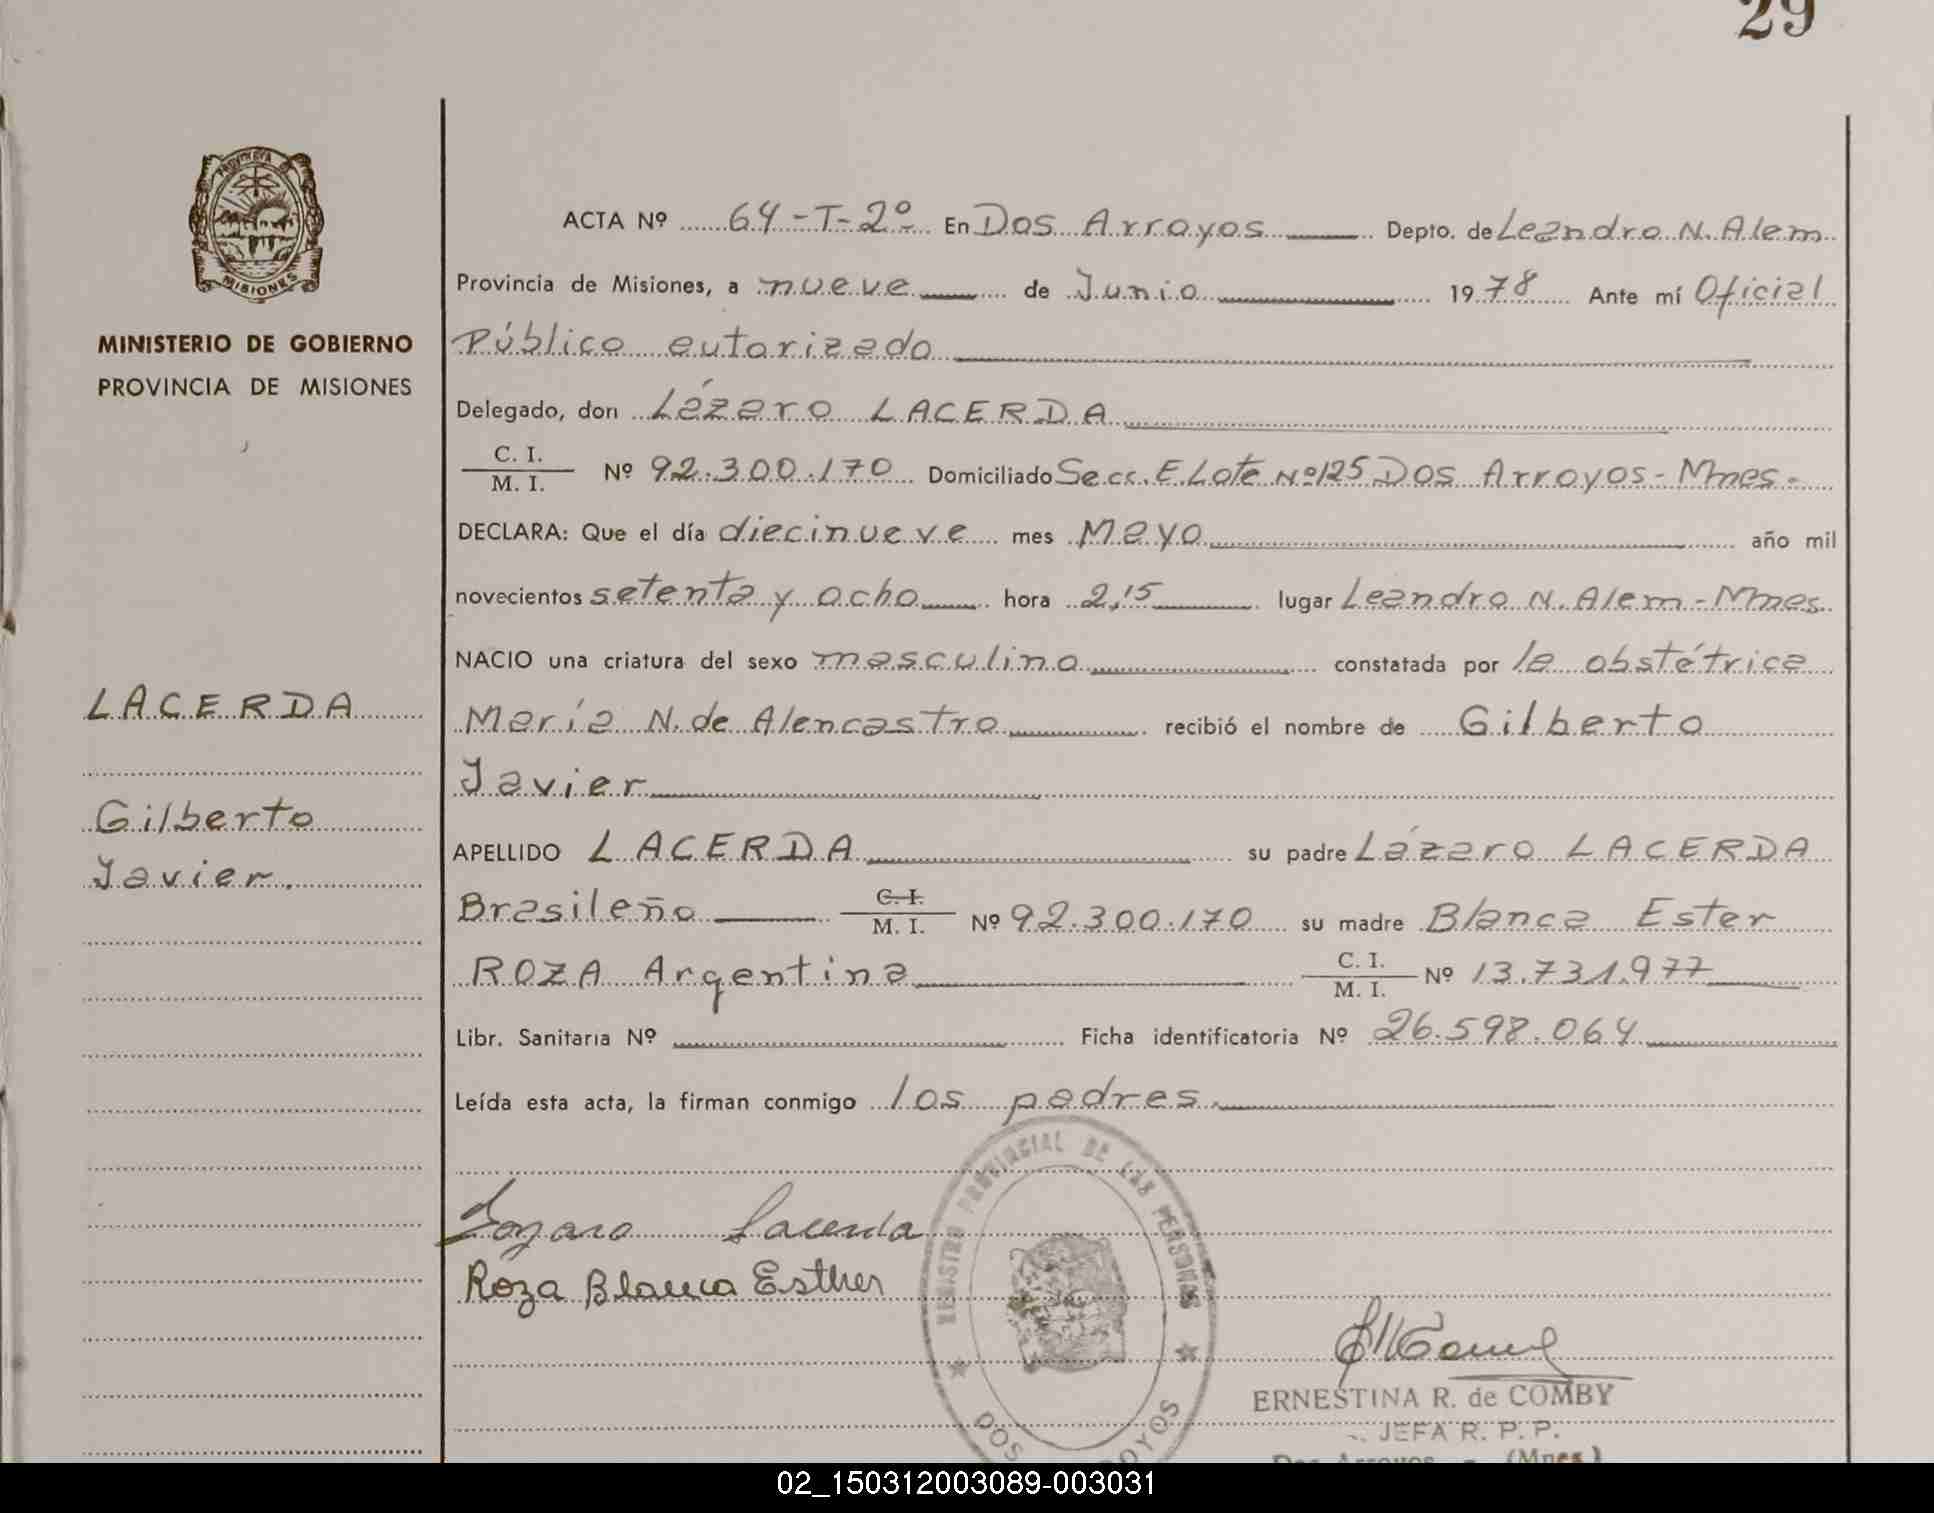 29
PROVINCIA
MISIONES
MINISTERIO DE GOBIERNO
PROVINCIA DE MISIONES
LACERDA
Gilberto
Javier.
ACTA Nº 64-T-2º- En Dos Arroyos Depto. de Leandro N. Alem
Provincia de Misiones, a nueve de Junio 1978 Ante mí Oficial
Público autorizado
Delegado, don Lázaro LACERDA
C. I.
M. I. Nº 92.300.170 Domiciliado Secc. E. Lote Nº 125 Dos Arroyos - Mnes.
DECLARA: Que el día diecinueve mes Mayo año mil
novecientos setenta y ocho hora 2,15 lugar Leandro N. Alem - Mnes.
NACIO una criatura del sexo masculino constatada por la obstétrica
María N. de Alencastro recibió el nombre de Gilberto
Javier
APELLIDO LACERDA su padre Lázaro LACERDA
Brasileño C. I.
M. I. Nº 92.300.170 su madre Blanca Ester
ROZA Argentina C. I.
M. I. Nº 13.731.977
Libr. Sanitaria Nº Ficha identificatoria Nº 26.598.064
Leída esta acta, la firman conmigo los padres.
REGISTRO PROVINCIAL DE LAS PERSONAS
Lazaro Lacerda
Roza Blanca Esther
ERNESTINA R. de COMBY
JEFA R. P. P.
Dos Arroyos - (Mnes.)
DOS ARROYOS
02_150312003089-003031